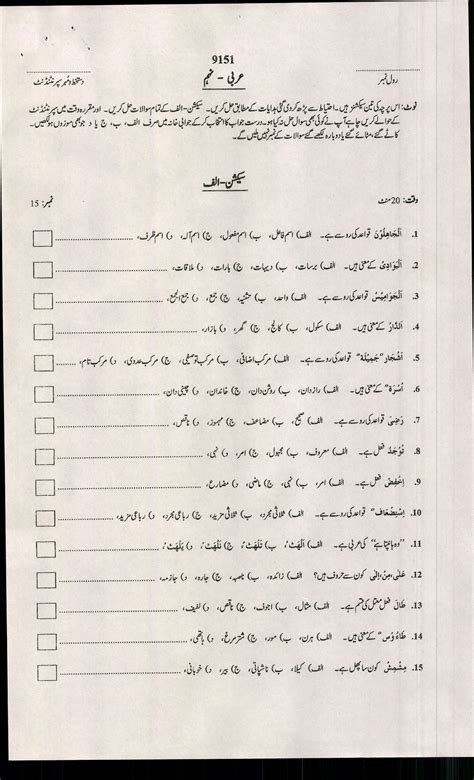 9151
رول نمبر ________ عربی - نہم دستخط ومہر سپرنٹنڈنٹ ________
نوٹ: اس پرچہ کی تین سیکشنز ہیں۔ احتیاط سے پڑھ کر دی گئی ہدایات کے مطابق حل کریں۔ سیکشن-الف کے تمام سوالات حل کریں۔ اور مقررہ وقت میں سپرنٹنڈنٹ
کے حوالے کریں چاہے آپ نے کوئی بھی سوال حل نہ کیا ہو۔ درست جواب کا انتخاب کر کے جوابی خانہ میں صرف الف، ب، ج یا د جو بھی موزوں ہو لکھیں۔
کاٹے گئے، مٹائے گئے یا دوبارہ لکھے گئے سوالات کے نمبر نہیں ملیں گے۔
سیکشن-الف
وقت: 20 منٹ نمبر: 15
1. اَلْجَاهِلُوْنَ قواعد کی رو سے ہے۔ الف) اسم فاعل، ب) اسم مفعول، ج) اسم آلہ، د) اسم ظرف،
2. اَلْبَوَادِیْ کے معنی ہیں۔ الف) برسات، ب) دیہات، ج) بارات، د) ملاقات،
3. اَلْجَوَامِيْسُ قواعد کی رو سے ہے۔ الف) واحد، ب) تثنیہ، ج) جمع، د) جمع الجمع،
4. اَلدَّارُ کے معنی ہیں۔ الف) سکول، ب) کالج، ج) گھر، د) بازار،
5. اَشْجَارٌ جَمِيْلَةٌ قواعد کی رو سے ہے۔ الف) مرکب اضافی، ب) مرکب توصیفی، ج) مرکب عددی، د) مرکب تام،
6. اُسْرَةٌ کے معنی ہیں۔ الف) رازدان، ب) روشن دان، ج) خاندان، د) چینی دان،
7. رَضِیَ قواعد کی رو سے ہے۔ الف) صحیح، ب) مضاعف، ج) مہموز، د) ناقص،
8. تُوْجَدُ فعل ہے۔ الف) معروف، ب) مجہول، ج) امر، د) نہی،
9. اِخْفِضْ فعل ہے۔ الف) امر، ب) نہی، ج) ماضی، د) مضارع،
10. اِسْتِضْعَافٌ قواعد کی رو سے ہے۔ الف) ثلاثی مجرد، ب) ثلاثی مزید، ج) رباعی مجرد، د) رباعی مزید،
11. "وہ ہانپتا ہے" کی عربی ہے۔ الف) اَلْهَثُ، ب) نَلْهَثُ، ج) تَلْهَثُ، د) يَلْهَثُ،
12. عَلٰی، مِنْ، اِلٰی کون سے حروف ہیں؟ الف) زائدہ، ب) ناصبہ، ج) جارہ، د) جازمہ،
13. طَالَ فعل معتل کی قسم ہے۔ الف) مثال، ب) اجوف، ج) ناقص، د) لفیف،
14. طَاءُ وْسٌ کے معنی ہیں۔ الف) ہرن، ب) مور، ج) شتر مرغ، د) ہاتھی،
15. مِشْمِشٌ کون سا پھل ہے۔ الف) کیلا، ب) ناشپاتی، ج) بیر، د) خوبانی،